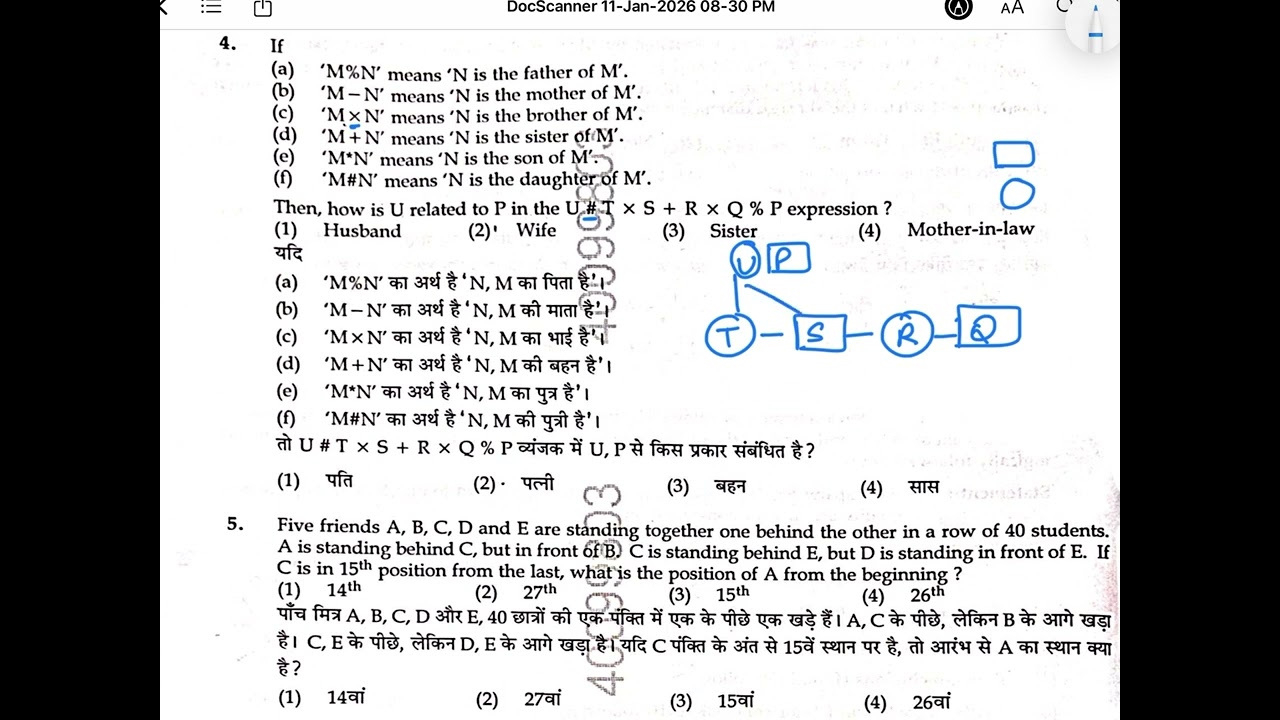 DocScanner 11-Jan-2026 08-30 PM
AA
4. If
(a) 'M%N' means 'N is the father of M'.
(b) 'M – N' means 'N is the mother of M'.
(c) 'M × N' means 'N is the brother of M'.
(d) 'M + N' means 'N is the sister of M'.
(e) 'M*N' means 'N is the son of M'.
(f) 'M#N' means 'N is the daughter of M'.
Then, how is U related to P in the U # T × S + R × Q % P expression ?
(1) Husband (2) Wife (3) Sister (4) Mother-in-law
यदि
(a) 'M%N' का अर्थ है 'N, M का पिता है'।
(b) 'M – N' का अर्थ है 'N, M की माता है'।
(c) 'M × N' का अर्थ है 'N, M का भाई है'।
(d) 'M + N' का अर्थ है 'N, M की बहन है'।
(e) 'M*N' का अर्थ है 'N, M का पुत्र है'।
(f) 'M#N' का अर्थ है 'N, M की पुत्री है'।
तो U # T × S + R × Q % P व्यंजक में U, P से किस प्रकार संबंधित है ?
(1) पति (2) पत्नी (3) बहन (4) सास
U P
T – S – R – Q
5. Five friends A, B, C, D and E are standing together one behind the other in a row of 40 students.
A is standing behind C, but in front of B. C is standing behind E, but D is standing in front of E. If
C is in 15th position from the last, what is the position of A from the beginning ?
(1) 14th (2) 27th (3) 15th (4) 26th
पाँच मित्र A, B, C, D और E, 40 छात्रों की एक पंक्ति में एक के पीछे एक खड़े हैं। A, C के पीछे, लेकिन B के आगे खड़ा
है। C, E के पीछे, लेकिन D, E के आगे खड़ा है। यदि C पंक्ति के अंत से 15वें स्थान पर है, तो आरंभ से A का स्थान क्या
है ?
(1) 14वां (2) 27वां (3) 15वां (4) 26वां